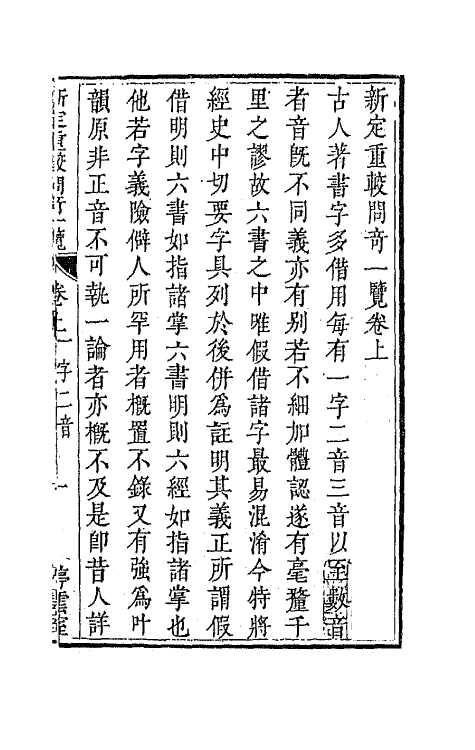 新定重較問奇一覽卷上
古人著書字多借用每有一字二音三音以至數音
者音旣不同義亦有别若不細加體認遂有毫釐千
里之謬故六書之中唯假借諸字最易混淆今特將
經史中切要字具列於後併爲註明其義正所謂假
借明則六書如指諸掌六書明則六經如指諸掌也
他若字義險僻人所罕用者槪置不錄又有強爲叶
韻原非正音不可執一論者亦槪不及是卽昔人詳
新定重較問奇一覽 卷上 一字二音 一